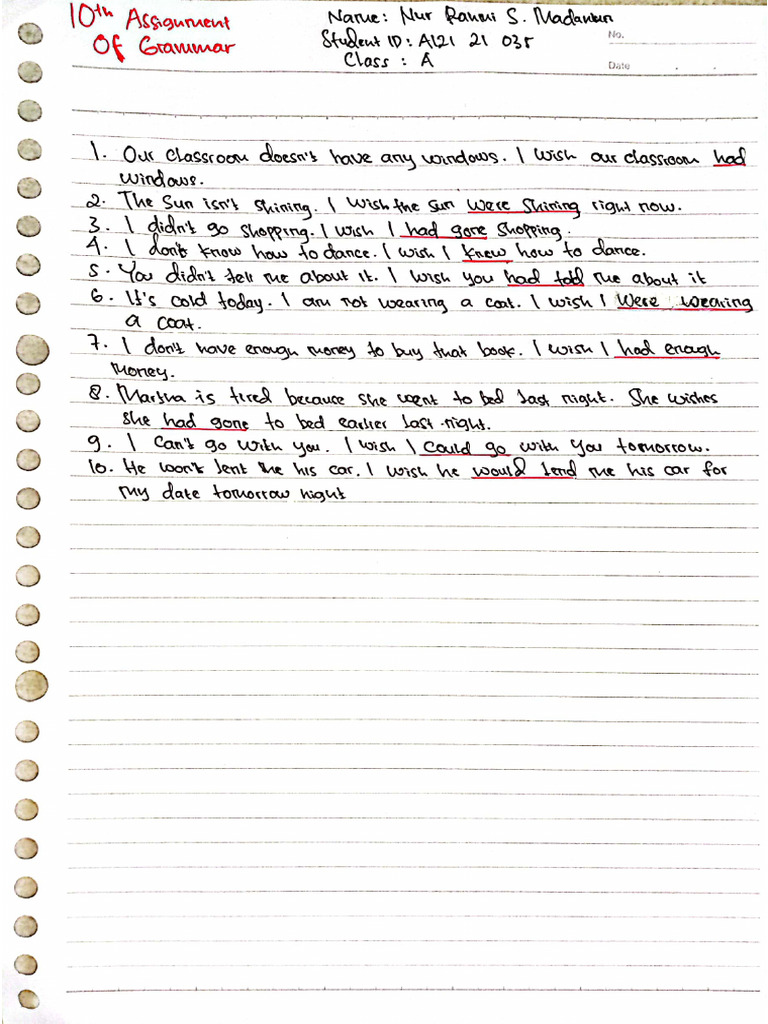 10th Assignment
Of Grammar
Name: Nur Rahmi S. Madankun
Student ID: A121 21 035
Class : A
No.
Date
1. Our classroom doesn't have any windows. I wish our classroom had
windows.
2. The Sun isn't shining. I wish the sun were shining right now.
3. I didn't go shopping. I wish I had gone shopping.
4. I don't know how to dance. I wish I knew how to dance.
5. You didn't tell me about it. I wish you had told me about it
6. It's cold today. I am not wearing a coat. I wish I were wearing
a coat.
7. I don't have enough money to buy that book. I wish I had enough
money.
8. Martha is tired because she went to bed last night. She wishes
she had gone to bed earlier last night.
9. I can't go with you. I wish I could go with you tomorrow.
10. He won't lent me his car. I wish he would lend me his car for
my date tomorrow night